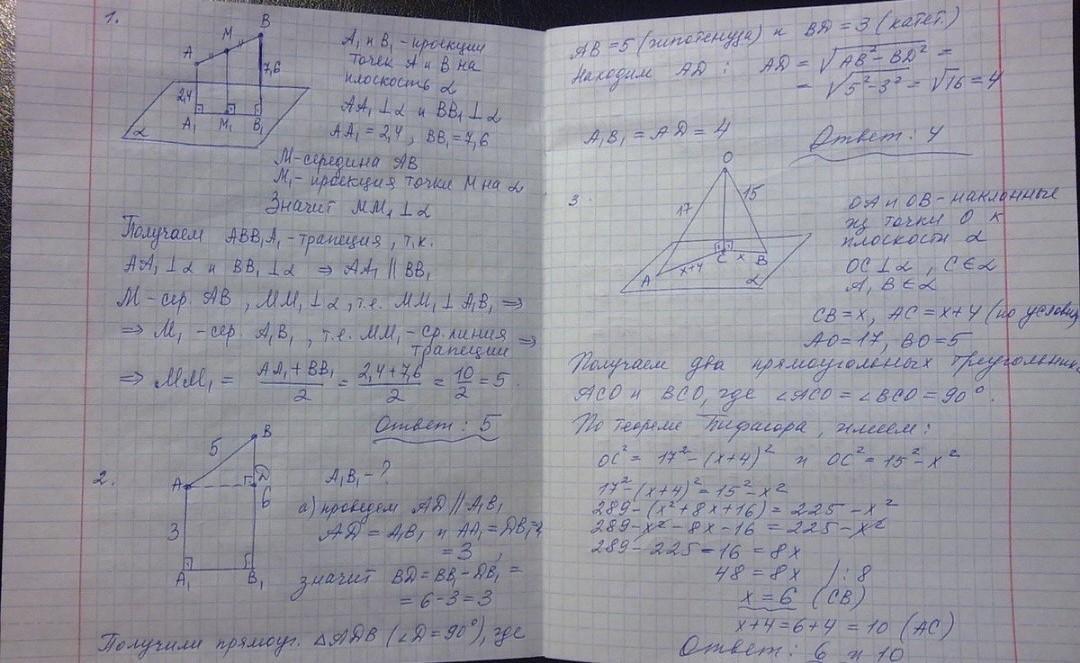 1.
B
M
A
7,6
2,4
A₁ M₁ B₁
α
A₁ и B₁ - проекции
точек A и B на
плоскость α
AA₁ ⊥ α и BB₁ ⊥ α
AA₁ = 2,4 , BB₁ = 7,6
M - середина AB
M₁ - проекция точки M на α
Значит MM₁ ⊥ α
Получаем ABB₁A₁ - трапеция, т.к.
AA₁ ⊥ α и BB₁ ⊥ α ⇒ AA₁ ∥ BB₁
M - сер. AB , MM₁ ⊥ α , т.е. MM₁ ⊥ A₁B₁ ⇒
⇒ M₁ - сер. A₁B₁ , т.е. MM₁ - ср. линия
трапеции ⇒
⇒ MM₁ = (AA₁ + BB₁)/2 = (2,4 + 7,6)/2 = 10/2 = 5.
Ответ: 5
2.
B
5
A
D
6
3
A₁ B₁
A₁B₁ - ?
а) проведем AD ∥ A₁B₁
AD = A₁B₁ и AA₁ = DB₁ =
= 3 ,
значит BD = BB₁ - DB₁ =
= 6 - 3 = 3
Получили прямоуг. △ADB (∠D = 90°), где
AB = 5 (гипотенуза) и BD = 3 (катет.)
Находим AD : AD = √(AB² - BD²) =
= √(5² - 3²) = √16 = 4
A₁B₁ = AD = 4
Ответ: 4
3.
O
17
15
C
x+4
x
A
B
α
OA и OB - наклонные
из точки O к
плоскости α
OC ⊥ α , C ∈ α
A, B ∈ α
CB = x, AC = x + 4 (по услови
AO = 17, BO = 5
Получаем два прямоугольных треугольник
ACO и BCO, где ∠ACO = ∠BCO = 90°.
По теореме Пифагора, имеем:
OC² = 17² - (x+4)² и OC² = 15² - x²
17² - (x+4)² = 15² - x²
289 - (x² + 8x + 16) = 225 - x²
289 - x² - 8x - 16 = 225 - x²
289 - 225 - 16 = 8x
48 = 8x ) : 8
x = 6 (CB)
x + 4 = 6 + 4 = 10 (AC)
Ответ: 6 и 10